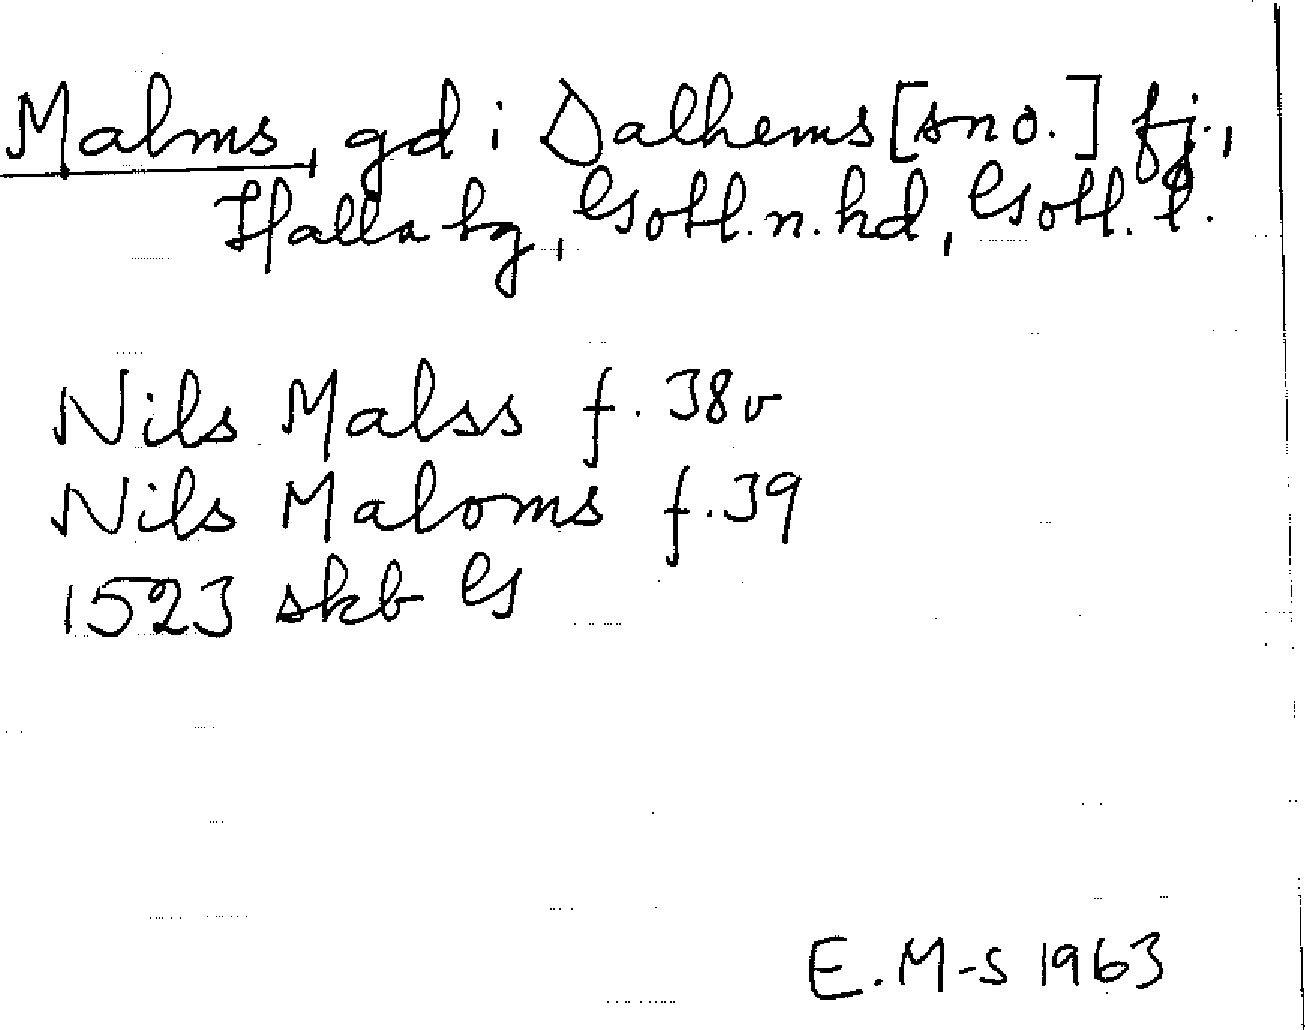 Malms, gd i Dalhems [sno.] fj.,
Halla tg, Gotl. n. hd, Gotl. l.
Nils Malss f. 38v
Nils Maloms f. 39
1523 skb G
E. M-s 1963